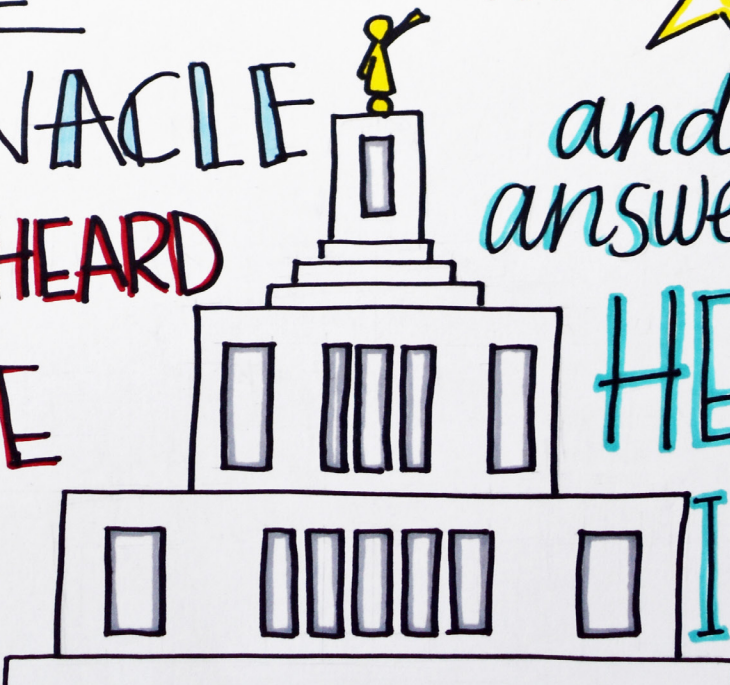 NACLE
HEARD
E
and
answe
HE
I